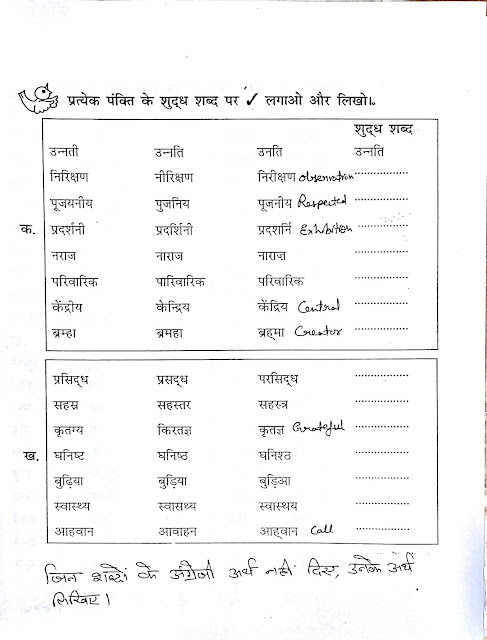 प्रत्येक पंक्ति के शुद्ध शब्द पर ✓ लगाओ और लिखो।
शुद्ध शब्द
उन्नती उन्नति उनति उन्नति
निरिक्षण नीरिक्षण निरीक्षण observation ..................
पूजयनीय पुजनिय पूजनीय Respected ..................
क. प्रदर्शनी प्रदर्शिनी प्रदशर्नि Exhibition ..................
नराज नाराज नाराज़ ..................
परिवारिक पारिवारिक परिवारिक ..................
केंद्रीय केन्द्रिय केंद्रिय Central ..................
ब्रम्हा ब्रमहा ब्रह्मा Creator ..................
प्रसिद्ध प्रसद्ध परसिद्ध ..................
सहस्र सहस्तर सहस्त्र ..................
कृतग्य किरतज्ञ कृतज्ञ Grateful ..................
ख. घनिष्ट घनिष्ठ घनिश्ठ ..................
बुढ़िया बुड़िया बुड़िआ ..................
स्वास्थ्य स्वासथ्य स्वास्थय ..................
आहवान आवाहन आह्वान Call ..................
जिन शब्दों के अंग्रेजी अर्थ नहीं दिए, उनके अर्थ
लिखिए।